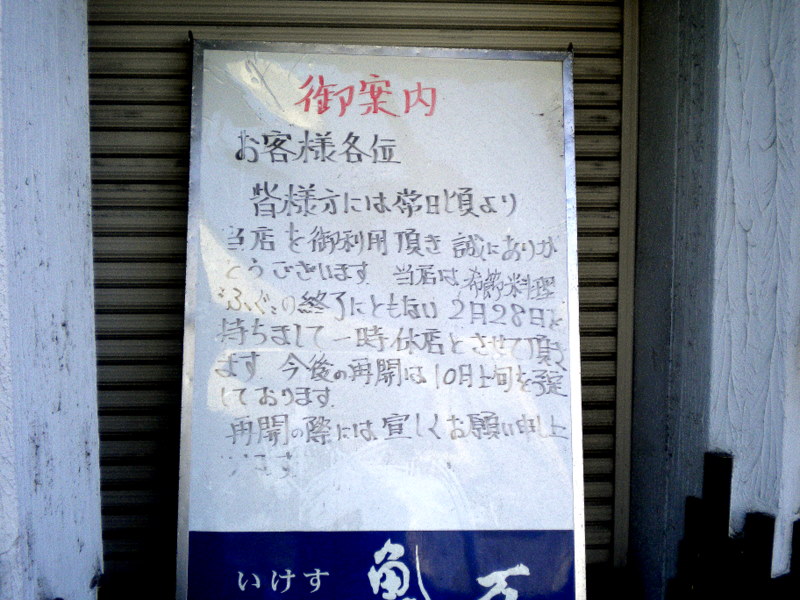 御案内
お客様各位
皆様方には常日頃より
当店を御利用頂き 誠にありが
とうございます 当店は 季節料理
"ふぐ"の終了にともない 2月28日を
持ちまして一時休店とさせて頂き
ます 今後の再開は10月上旬を予定
しております.
再開の際には宜しくお願い申し上
げます
いけす 魚万